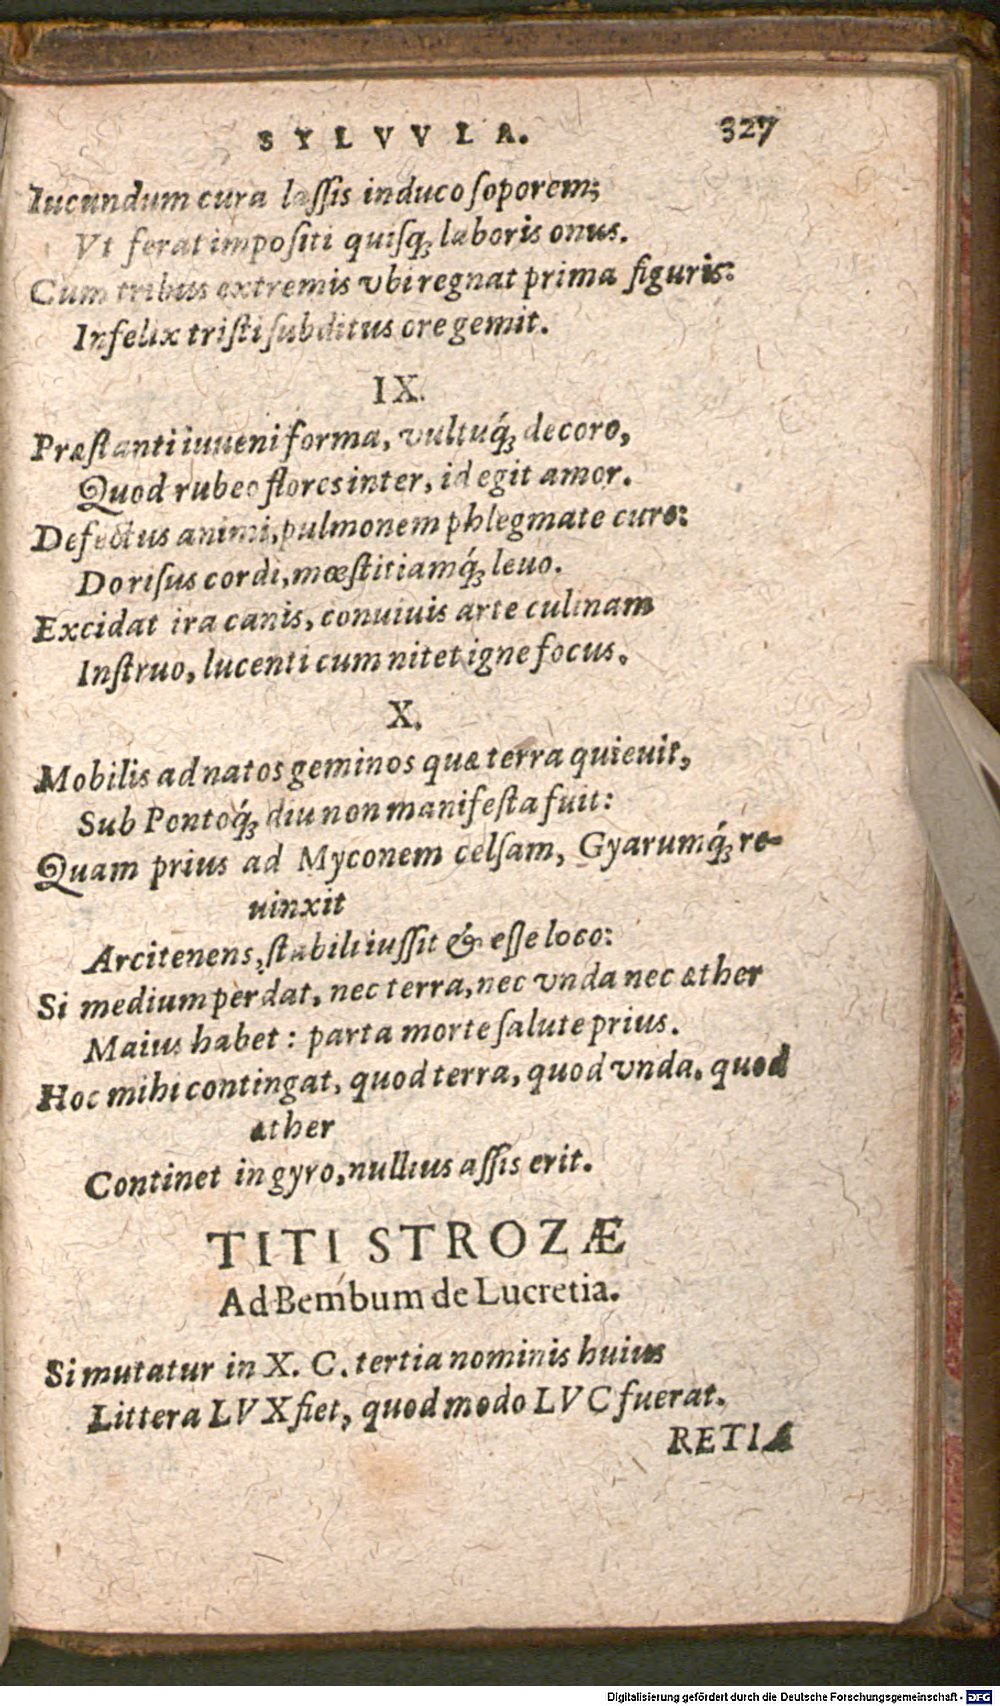 SYLVVLA. 327
Iucundum cura laſſis induco ſoporem;
Vt ferat impoſiti quiſq; laboris onus.
Cum tribus extremis vbi regnat prima figuris:
Infelix triſti ſubditus ore gemit.
IX.
Præſtanti iuueni forma, vultuq́; decoro,
Quod rubeo flores inter, id egit amor.
Defectus animi, pulmonem phlegmate curo:
Do riſus cordi, mœſtitiamq́; leuo.
Excidat ira canis, conuiuis arte culinam
Inſtruo, lucenti cum nitet igne focus.
X.
Mobilis ad natos geminos quæ terra quieuit,
Sub Pontoq́; diu non manifeſta fuit:
Quam prius ad Myconem celſam, Gyarumq́; re-
uinxit
Arcitenens, ſtabili iuſſit & eſſe loco:
Si medium perdat, nec terra, nec vnda nec æther
Maius habet: parta morte ſalute prius.
Hoc mihi contingat, quod terra, quod vnda, quod
æther
Continet in gyro, nullius aſſis erit.
TITI STROZÆ
Ad Bembum de Lucretia.
Si mutatur in X. C. tertia nominis huius
Littera LVX fiet, quod modo LVC fuerat.
RETIA
Digitalisierung gefördert durch die Deutsche Forschungsgemeinschaft - DFG